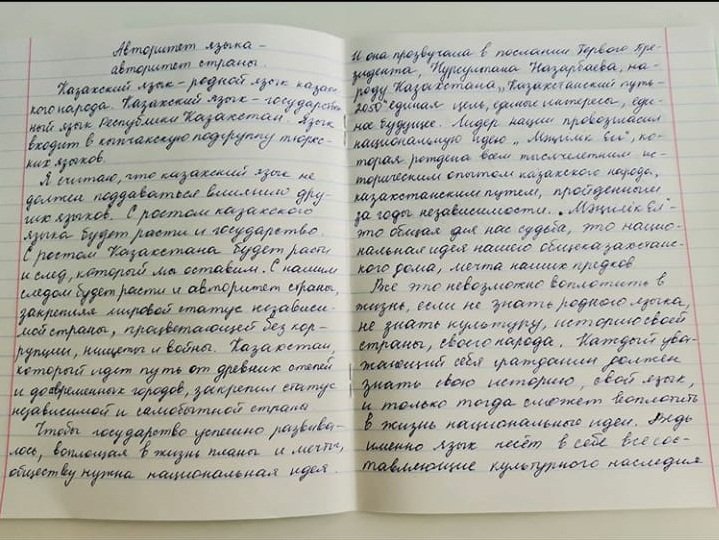 Авторитет языка –
авторитет страны.
Казахский язык – родной язык казахс-
кого народа. Казахский язык – государствен-
ный язык Республики Казахстан. Язык
входит в кыпчакскую подгруппу тюркс-
ких языков.
Я считаю, что казахский язык не
должен поддаваться влиянию дру-
гих языков. С ростом казахского
языка будет расти и государство.
С ростом Казахстана будет расти
и след, который мы оставим. С нашим
следом будет расти и авторитет страны,
закрепляя мировой статус независи-
мой страны, процветающей без кор-
рупции, нищеты и войны. Казахстан,
который идет путь от древних степей
и до современных городов, закрепил статус
независимой и самобытной страны
Чтобы государство успешно развива-
лось, воплощая в жизнь планы и мечты,
обществу нужна национальная идея.
И она прозвучала в послании Первого Пре-
зидента, Нурсултана Назарбаева, на-
роду Казахстана „Казахстанский путь-
2050" единая цель, единые интересы, еди-
ное будущее. Лидер нации провозгласил
национальную идею „Мәңгілік Ел", ко-
торая рождена всем тысячелетним ис-
торическим опытом казахского народа,
казахстанским путем, пройденным
за годы независимости. „Мәңгілік Ел"-
это общая для нас судьба, это нацио-
нальная идея нашего общеказахстанс-
кого дома, мечта наших предков.
Все это невозможно воплотить в
жизнь, если не знать родного языка,
не знать культуру, историю своей
страны, своего народа. Каждый ува-
жающий себя гражданин должен
знать свою историю, свой язык,
и только тогда сможет воплотить
в жизнь национальные идеи. Ведь
именно язык несёт в себе все сос-
тавляющие культурного наследия